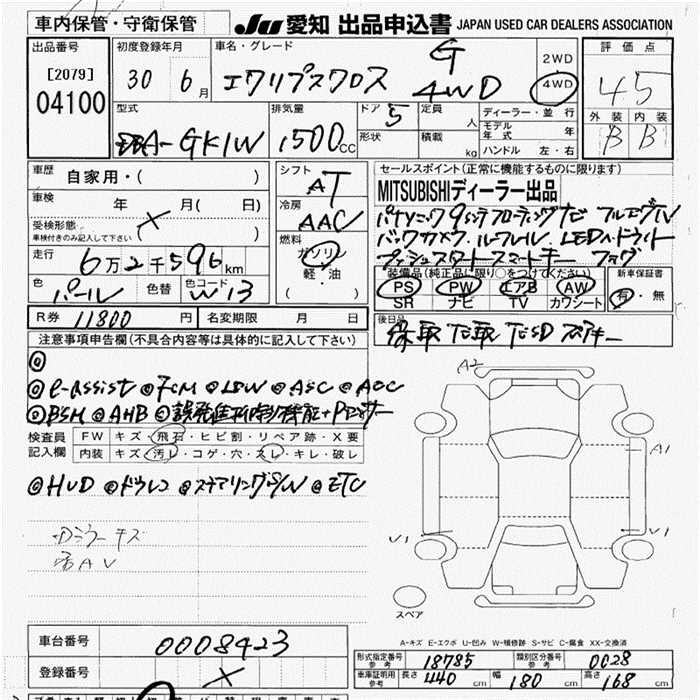 車内保管・守衛保管 JU 愛知 出品申込書 JAPAN USED CAR DEALERS ASSOCIATION
出品番号 [2079] 04100
初度登録年月 30年 6月
車名・グレード エクリプスクロス G 4WD
2WD 4WD
評価点 4.5
外装 B 内装 B
型式 DBA-GK1W
排気量 1500cc
ドア 5 定員 人
形状 積載 kg
ディーラー・並行
モデル年式 年
ハンドル 左・右
車歴 自家用・( )
車検 年 月( 日)
受検形態 車検付きのみ記入して下さい ( )
走行 6万2千596km
色 パール 色替 色コード W13
シフト AT
冷房 AAC
燃料 ガソリン 軽・油 ( )
セールスポイント(正常に機能するものに限ります)
MITSUBISHIディーラー出品
バックカメラ・ルーフレール LEDヘッドライト
プッシュスタートスマートキー
装備品(純正品に限り○をつけてください)
PS PW エアB AW
SR ナビ TV カワシート
新車保証書 有・無
R券 11800円 名変期限 月 日
後日品
注意事項申告欄(不具合内容等は具体的に記入して下さい)
◎
◎e-Assist ◎FCM ◎LDW ◎ASC ◎ACC
◎BSM ◎AHB ◎誤発進抑制機能+Pセンサー
検査員記入欄 FW キズ・飛石・ヒビ割・リペア跡・X要
内装 キズ・汚レ・コゲ・穴・スレ・キレ・破レ
◎HUD ◎ドラレコ ◎ステアリングS/W ◎ETC
A2
A1
V1 V1
スペア
A-キズ E-エクボ U-凹み W-補修跡 S-サビ C-腐食 XX-交換済
車台番号 0008423
登録番号
形式指定番号 参考 18785 類別区分番号 参考 0028
車庫証明用 参考 長さ 440cm 幅 180cm 高さ 168cm